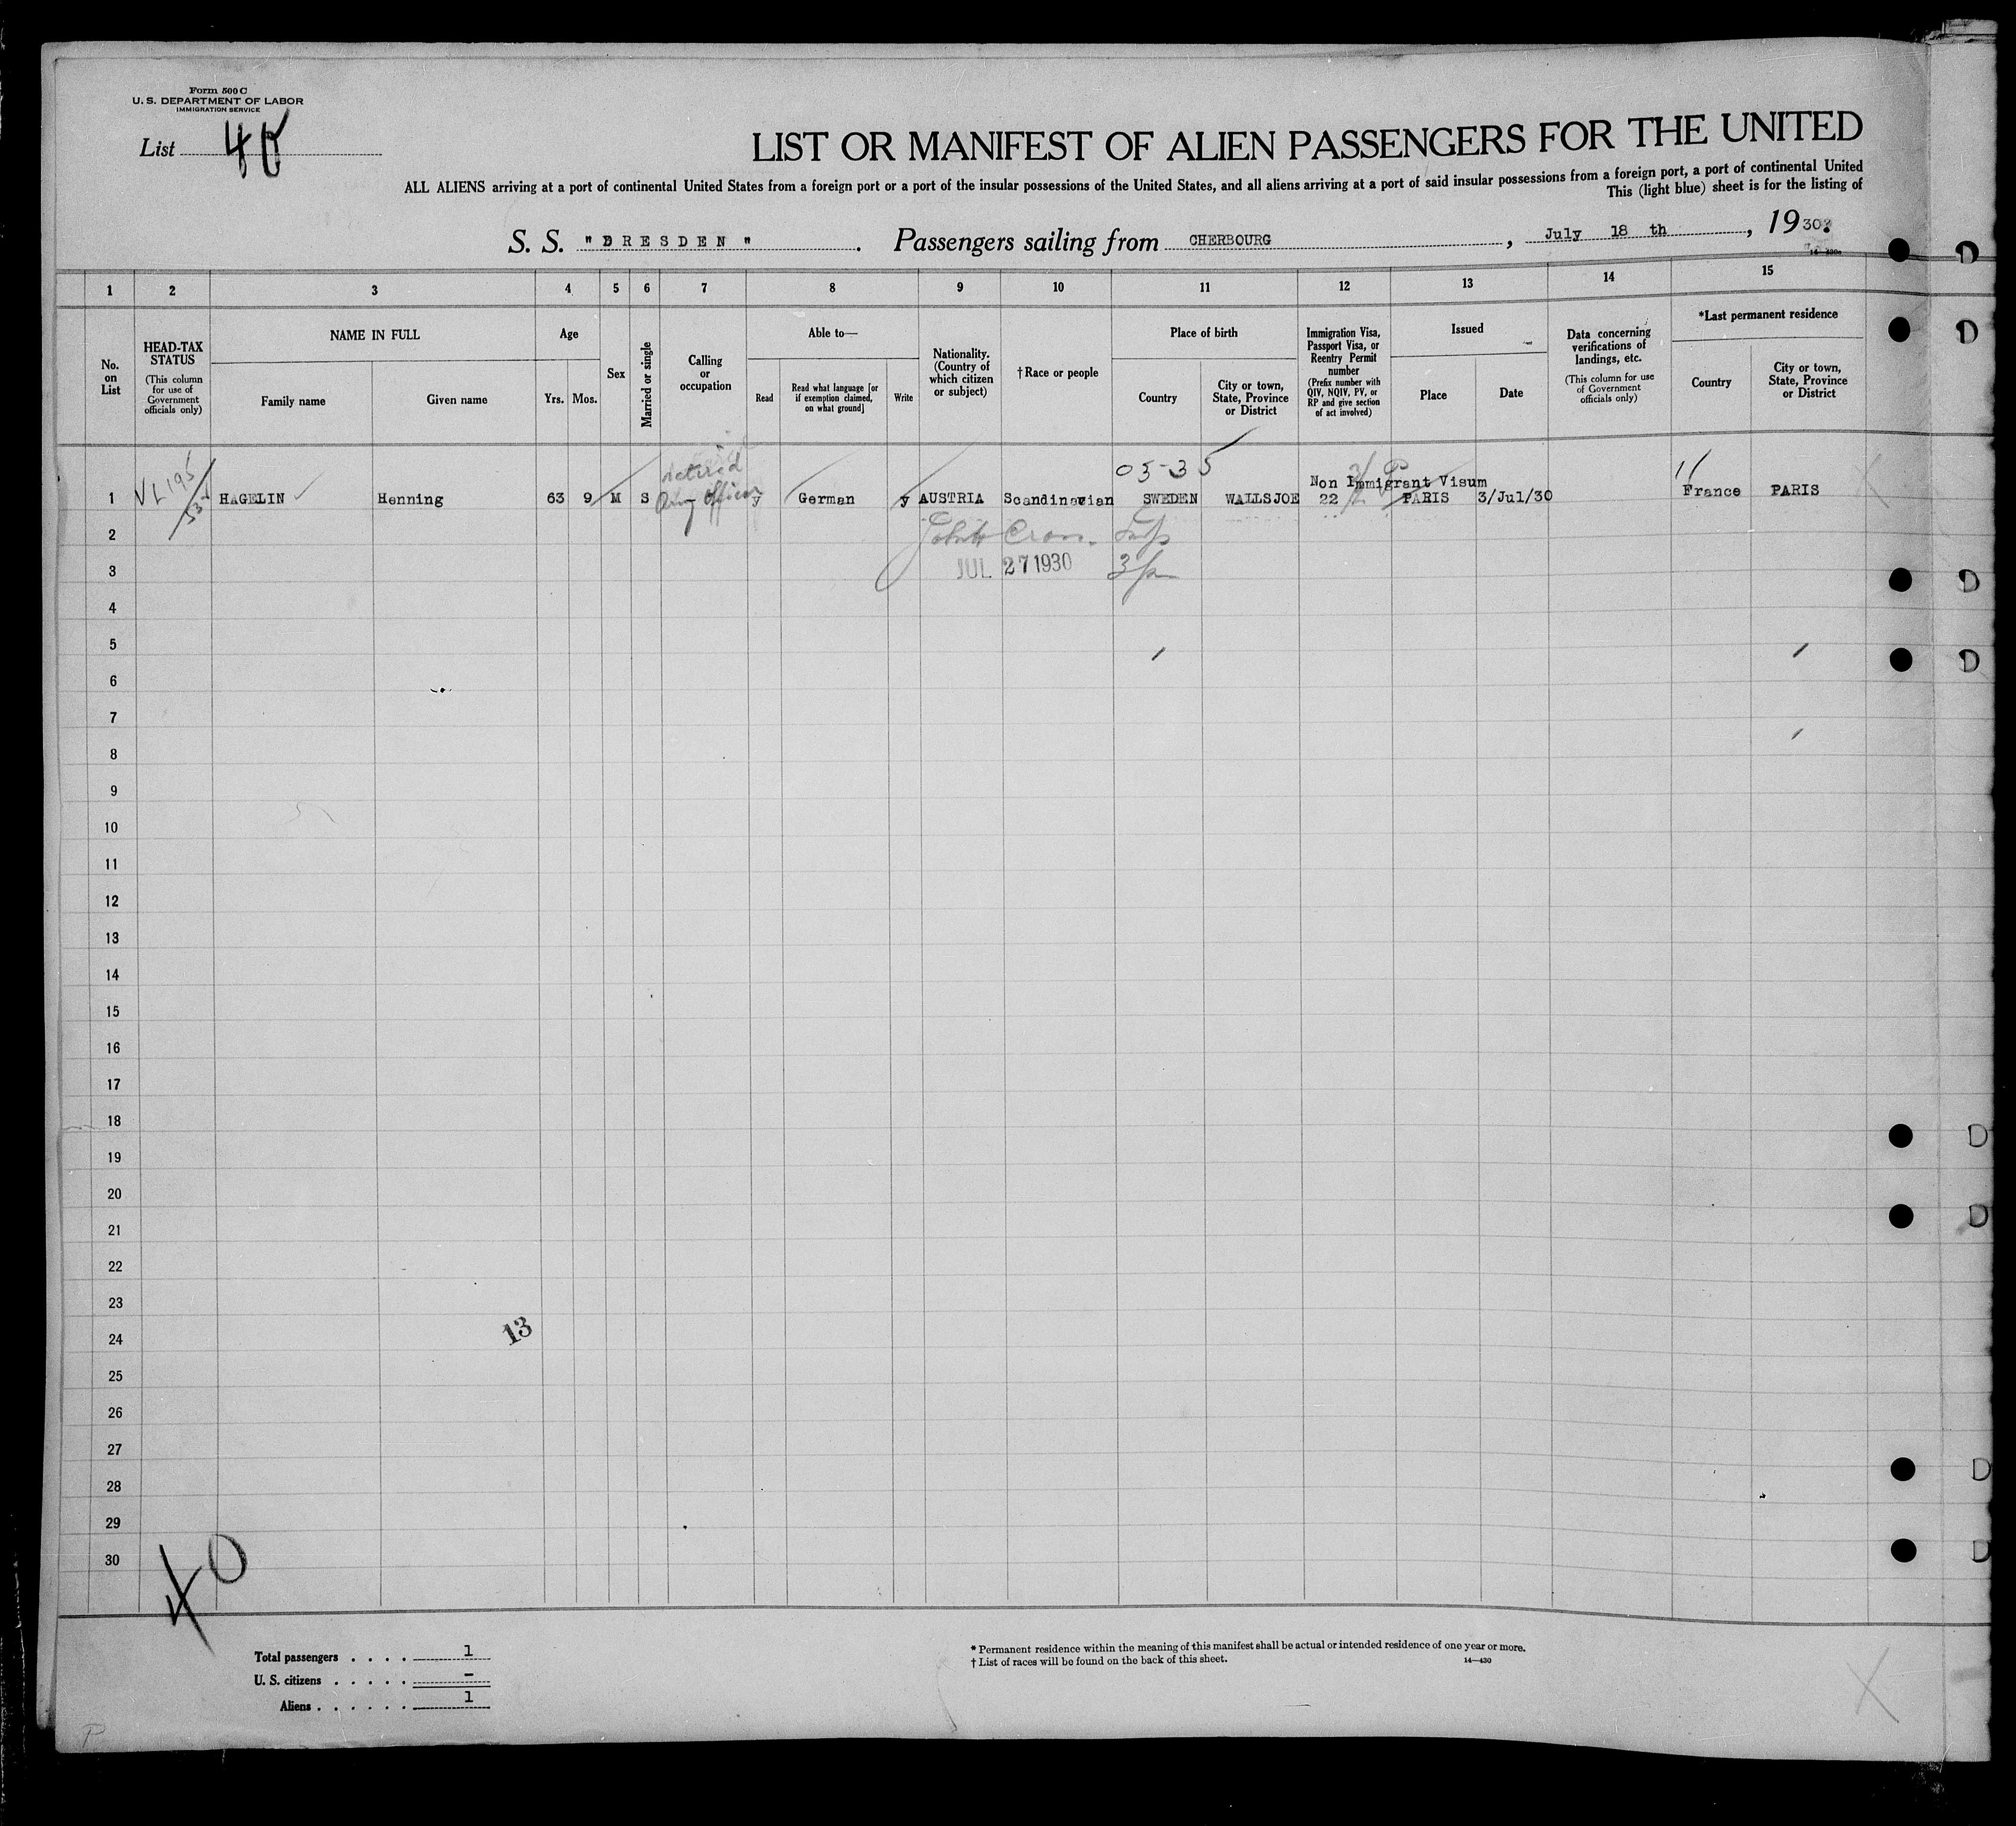 Form 500 C
U. S. DEPARTMENT OF LABOR
IMMIGRATION SERVICE
List 40
LIST OR MANIFEST OF ALIEN PASSENGERS FOR THE UNITED
ALL ALIENS arriving at a port of continental United States from a foreign port or a port of the insular possessions of the United States, and all aliens arriving at a port of said insular possessions from a foreign port, a port of continental United
This (light blue) sheet is for the listing of
S. S. "DRESDEN" . Passengers sailing from CHERBOURG , July 18 th , 1930
1 2 3 4 5 6 7 8 9 10 11 12 13 14 15
No. on List
HEAD-TAX STATUS
(This column for use of Government officials only)
NAME IN FULL
Family name
Given name
Age
Yrs.
Mos.
Sex
Married or single
Calling or occupation
Able to—
Read
Read what language [or if exemption claimed, on what ground]
Write
Nationality. (Country of which citizen or subject)
†Race or people
Place of birth
Country
City or town, State, Province or District
Immigration Visa, Passport Visa, or Reentry Permit number
(Prefix number with QIV, NQIV, PV, or RP and give section of act involved)
Issued
Place
Date
Data concerning verifications of landings, etc.
(This column for use of Government officials only)
*Last permanent residence
Country
City or town, State, Province or District
05-35
retired
Non Immigrant Visum
1 HAGELIN Henning 63 9 M S Army Officer y German y AUSTRIA Scandinavian SWEDEN WALLSJOE 22 PARIS 3/Jul/30 France PARIS
2
3 JUL 27 1930
4
5
6
7
8
9
10
11
12
13
14
15
16
17
18
19
20
21
22
23
24 13
25
26
27
28
29
30
40
Total passengers . . . . 1
U. S. citizens . . . . . –
Aliens . . . . . . 1
* Permanent residence within the meaning of this manifest shall be actual or intended residence of one year or more.
† List of races will be found on the back of this sheet.
14—430